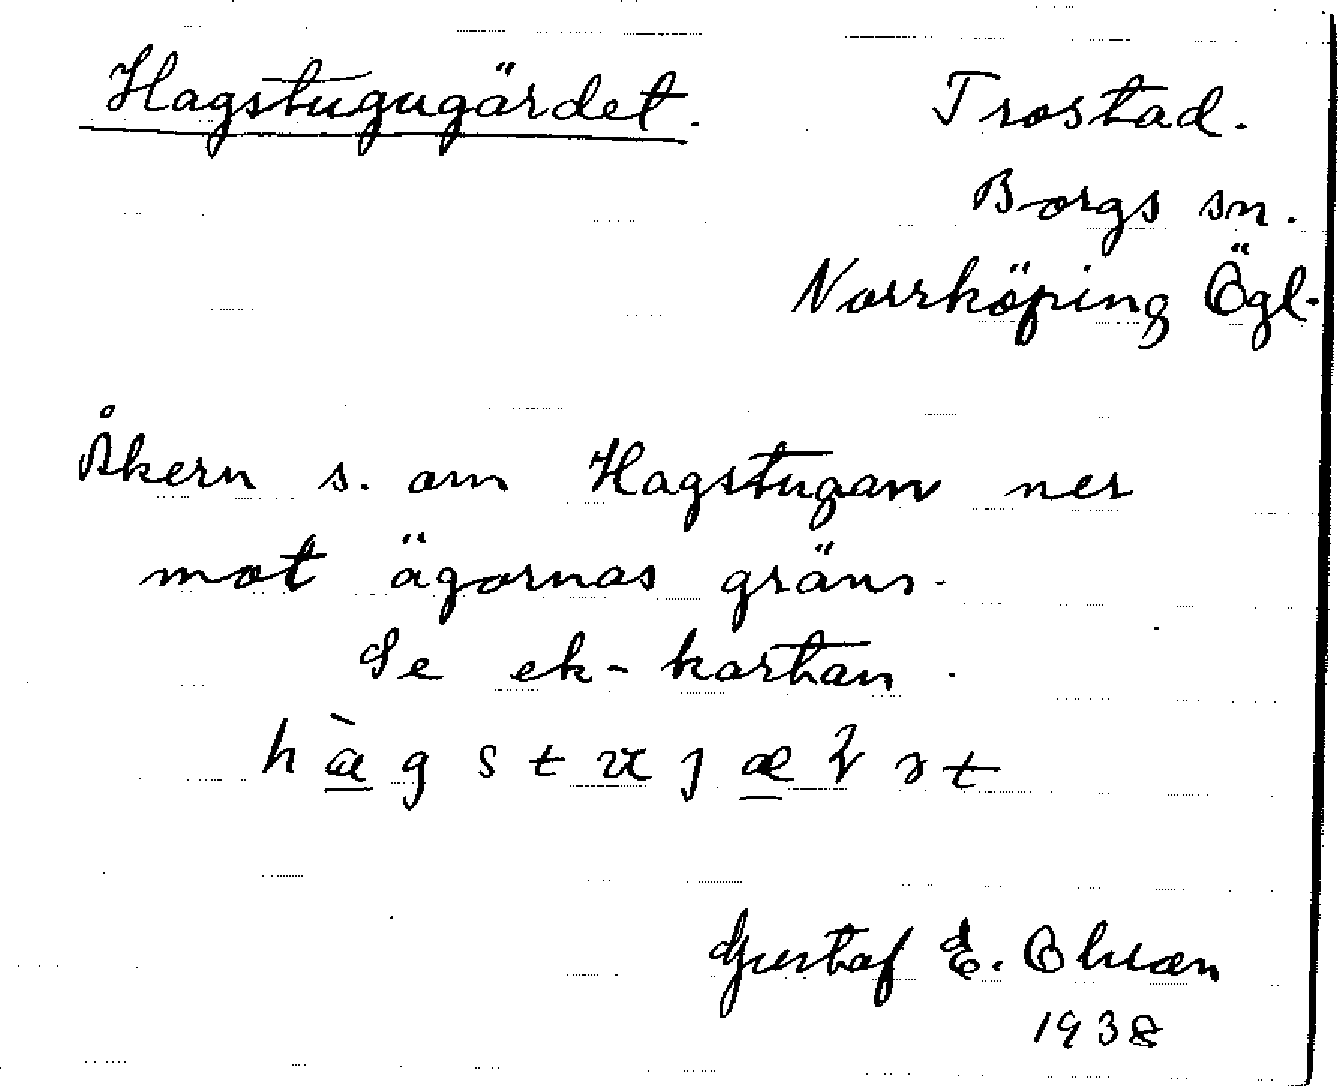 Hagstugugärdet. Trostad.
Borgs sn.
Norrköping Ögl.
Åkern s. om Hagstugan ner
mot ägornas gräns.
Se ek-kartan.
Gustaf E. Olsson
1938